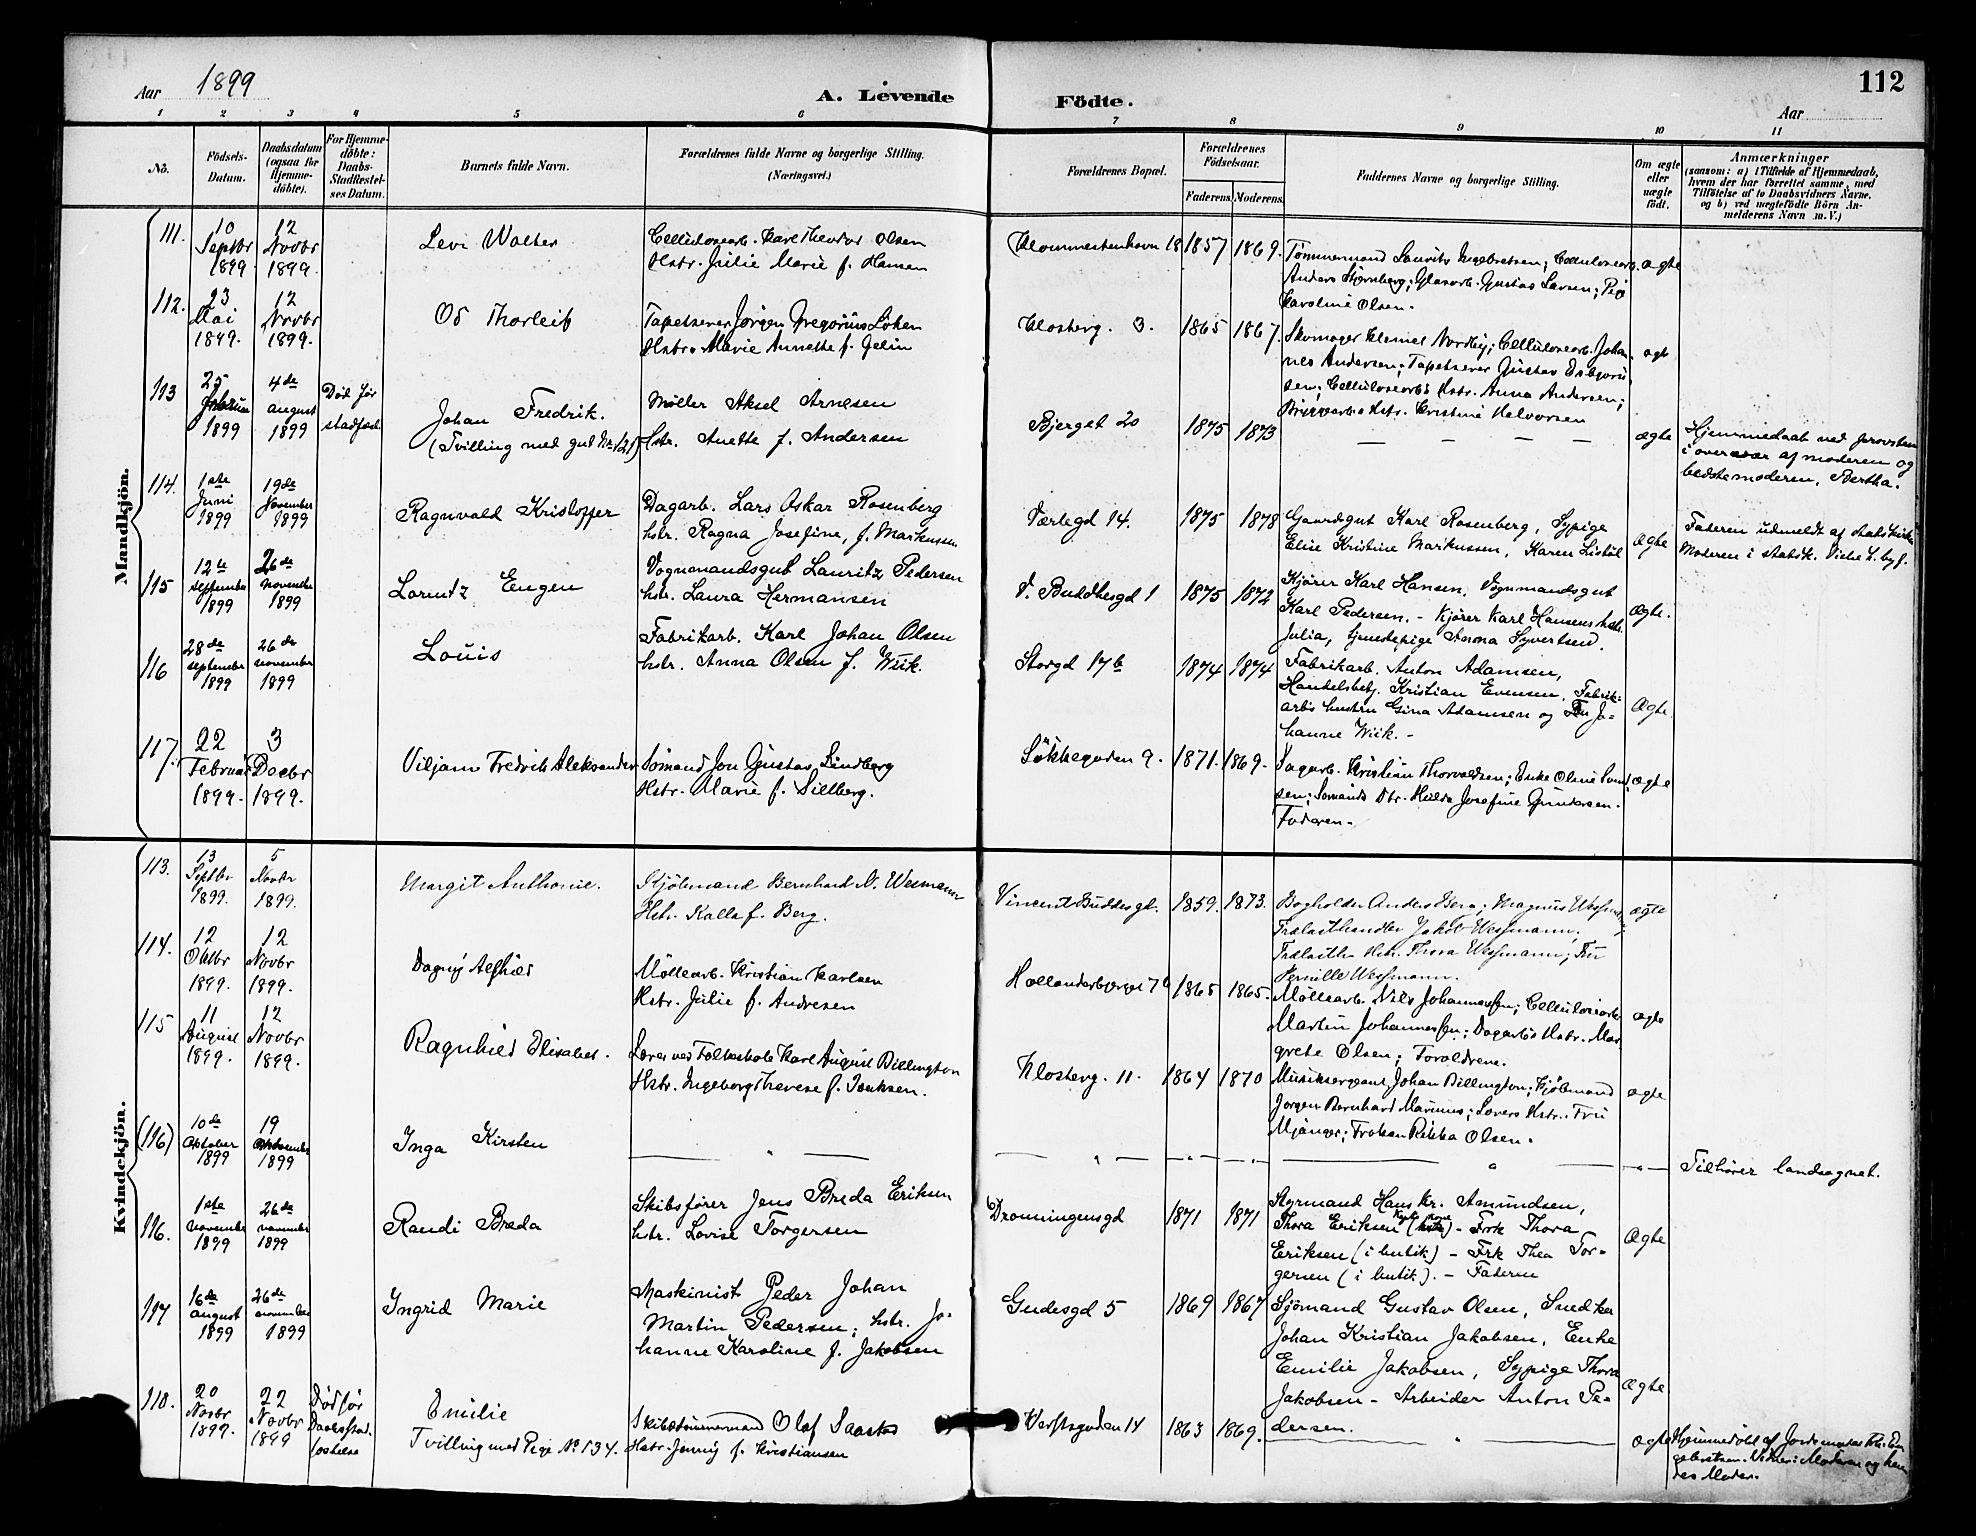 Aar 1899
A. Levende
Födte.
112
Aar
1 2 3 4 5 6 7 8 9 10 11
No.
Födsels-
Datum.
Daabsdatum
(ogsaa for
Hjemme-
döbte).
For Hjemme-
döbte:
Daabs-
Stadfæstel-
ses Datum.
Barnets fulde Navn.
Forældrenes fulde Navne og borgerlige Stilling.
(Næringsvei.)
Forældrenes Bopæl.
Forældrenes
Födselsaar.
Faderens.
Moderens.
Faddernes Navne og borgerlige Stilling.
Om ægte
eller
uægte
födt.
Anmærkninger
(saasom: a) i Tilfælde af Hjemmedaab,
hvem der har forrettet samme, med
Tilföielse af to Daabsvidners Navne,
og b) ved uægtefödte Börn An-
melderens Navn m. V.)
Mandkjön.
111.
10
Septbr
1899.
12
Novbr
1899.
Levi Walter
Cellulosearb. Karl Theodor Olsen
Hstr. Julie Marie f. Hansen
18
1857
1869.
Tømmermand Laurits Ingebretsen; Cellulosearb.
Anders Stjernberg; Glasarb. Gustav Larsen; Pige
Karoline Olsen.
ægte
112.
23
Mai
1899.
12
Novbr
1899.
Of Thorleif
Tapetserer Jørgen Gregorius Løken
Hstr. Marie Annette f. Jelin
Klosterg. 3.
1865
1867.
Skomager Klemet Nordby; Cellulosearb. Johan-
nes Andersen; Tapetserer Gustav Esbjørn-
sen; Cellulosearbs Hstr. Anna Andersen;
Bryggearbs Hstr. Kristine Halvorsen
ægte
113
25
1899
4de
august
1899
Död før
stadfæst.
Johan Fredrik.
(Tvilling med gut Nr. 121)
Møller Aksel Arnesen
Hstr. Anette f. Andersen
Bjerget 20
1875
1873
— — — — —
ægte
Hjemmedaab ved Jorovsteen
i overvær af moderen og
bedstemoderen, Bertha.
114.
1ste
Juni
1899
19de
November
1899
Ragnvald Kristoffer
Dagarb. Lars Oskar Rosenberg
hstr. Ragna Josefine, f. Markussen
Værlegd 14.
1875
1878
Gaardsgut Karl Rosenberg, Sypige
Elise Kristine Markussen, Karen
ægte
Faderen udmeldt af statskirken
Moderen i statsk. Viede b. byf.
115
12te
september
1899
26de
november
1899
Lorentz Eugen
Vognmandsgut Lauritz Pedersen
hstr. Laura Hermansen
V. Buddesgd 1
1875
1872
Kjører Karl Hansen, Vognmandsgut
Karl Pedersen. – Kjører Karl Hansens hstr.
Julia, tjenestepige Anna Syvertsen.
Ægte.
116
28de
september
1899
26de
november
1899
Louis
Fabrikarb. Karl Johan Olsen
hstr. Anna Olsen f. Wiik.
Storgd 17b
1874
1874
Fabrikarb. Anton Adamsen,
Handelsbetj. Kristian Evensen, Fabrik-
arbs hustru Gina Adamsen og Fru Jo-
hanne Wiik. –
Ægte.
117.
22
Februar
1899.
3
Decbr
1899.
Viljam Fredrik Aleksander
Sømand Jon Gustav Lindberg
Hstr. Marie f. Sillberg.
Løkkegaden 9.
1871.
1869.
Dagarb. Kristian Thorvaldsen; Enke Oline
sen; Sømands Dtr. Hulda Josefine Gundersen.
Faderen.
ægte
Kvindekjön.
113.
13
Septbr
1899.
5
Novbr
1899.
Margit Anthonie.
Kjøbmand Bernhard N. Wesmann
Hstr. Kalla f. Berg.
Vincent Buddes gd.
1859.
1873.
Bogholder Anders Berg; Magnus Wessmann
Trælasthandler Jakob Wessmann;
Trælasth. Hstr. Thora Wessmann; Fru
Pernille Wessmann.
ægte
114.
12
Oktbr
1899.
12
Novbr
1899.
Dagny Alfhild
Møllearb. Kristian Karlsen
Hstr. Julie f. Andresen
Hollenderbjerget 7b
1865
1865.
Møllearb. Nils Johannessen; Cellulosearb.
Martin Johannessen; Dagarbs Hstr. Mar-
grete Olsen; Forældrene.
ægte
115
11
August
1899.
12
Novbr
1899.
Ragnhild Elisabet.
Lærer ved Folkeskole Karl August Billington
Hstr. Ingeborg Therese f. Isaksen.
Klosterg. 11.
1864
1870
Musiksergeant Johan Billington; Kjøbmand
Jørgen Bernhard Marinus; Lærers Hstr. Fru
Mjanger; Frøken Rikka Olsen.
ægte
(116)
10de
oktober
1899
19
november
1899
Inga Kirsten
— " —
— " —
— " —
— " —
— " —
— " —
Tilhører landsognet.
116.
1ste
november
1899
26de
november
1899
Randi Breda
Skibsfører Jens Breda Eriksen
hstr. Lovise Torgersen
Dronningensgd
1871
1871
Styrmand Hans Kr. Amundsen,
Thora Eriksen – Frk Thora
Eriksen (i butik) – Frk Thea Tor-
gersen (i butik). – Faderen
Ægte
117
16de
august
1899
26de
november
1899
Ingrid Marie
Maskinist Peder Johan
Martin Pedersen; hstr. Jo-
hanne Karoline f. Jakobsen
Gudesgd 5
1869
1867
Sjömand Gustav Olsen, Snedker
Johan Kristian Jakobsen, Enke
Emilie Jakobsen, Sypige Thora
Jakobsen – Arbeider Anton Pe-
dersen.
Ægte
118.
20
Novbr
1899.
22
Novbr
1899
Död før
Daabsstad-
fæstelse
Emilie
Tvilling med Pige No 134.
Skibstømmermand Olaf Saastad
Hstr. Jenny f. Kristiansen
Verftsgaden 14
1863
1869.
— " —
ægte
Hjemmedøbt af Jordemoder Fru En-
gebretsen. Vidner: Moderen og hen-
des Moder.